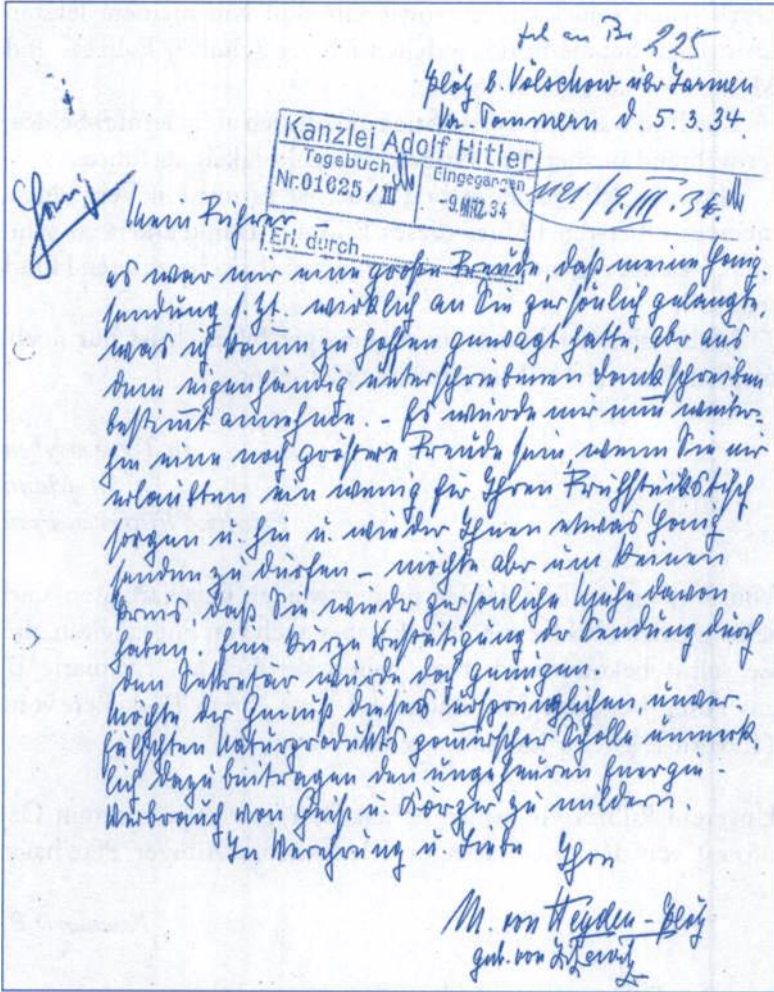 225
Plötz b. Völschow über Jarmen
Vor. Pommern d. 5.3.34.
Kanzlei Adolf Hitler
Tagebuch
Nr. 01625/III
Eingegangen
-9. MRZ. 34
Erl. durch
1121/9.III.34
Mein Führer
es war mir eine große Freude, daß meine Honig-
sendung s. Zt. wirklich an Sie persönlich gelangte,
was ich kaum zu hoffen gewagt hatte, abr aus
dem eigenhändig unterschriebenen Dankschreiben
bestimmt annehme. - Es würde mir nun weiter-
hin eine noch größere Freude sein, wenn Sie mir
erlaubten ein wenig für Ihren Frühstückstisch
sorgen u. hin u. wieder Ihnen etwas Honig
senden zu dürfen - möchte abr um keinen
Preis, daß Sie wieder persönliche Mühe davon
haben. Eine kurze Bestätigung der Sendung durch
den Sekretär würde doch genügen.
Möchte der Genuß dieses ursprünglichen, unver-
fälschten Naturprodukts pommerscher Scholle unmerk-
lich dazu beitragen den ungeheuren Energie-
verbrauch von Geist u. Körper zu mildern.
In Verehrung u. Liebe Ihre
M. von Heyden-Plötz
geb. von